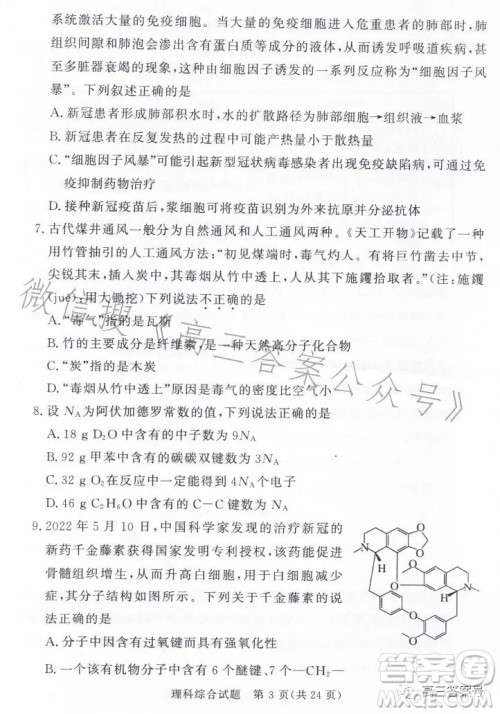 系统激活大量的免疫细胞。当大量的免疫细胞进入危重患者的肺部时,肺
组织间隙和肺泡渗出含有蛋白质等成分的液体,从而诱发呼吸道疾病,甚
至多脏器衰竭的现象,这种由细胞因子诱发的一系列反应称为“细胞因子风
暴”。下列叙述正确的是
A.新冠患者形成肺部积水时,水的扩散路径为肺部细胞→组织液→血浆
B.新冠患者在反复发热的过程中可能产热量小于散热量
C.“细胞因子风暴”可能引起新型冠状病毒感染患者出现生命危险,可使用免
疫抑制药物治疗
D.接种新冠疫苗后,浆细胞可将疫苗识别为外来物并与抗体结合
7.古代煤井通风一般分为自然通风和人工通风两种。《天工开物》记载了一种
用竹管抽引的人工通风方法:“初见煤端时,毒气灼人。有将巨竹凿去中节,
尖锐其末,插入炭中,其毒烟从竹中透上,人从其下施钁拾取者。”(注:施钁
(jué):用大锄挖)下列说法不正确的是
A.“毒气”指的是瓦斯
B.竹的主要成分是纤维素,是一种天然高分子化合物
C.“炭”指的是木炭
D.“毒烟从竹中透上”原因是毒气的密度比空气小
8.设 NA为阿伏加德罗常数的值,下列说法正确的是
A.18 g D2O 中含有的中子数为 9NA
B.92 g 甲苯中含有的碳碳双键数为 3NA
C.32 g O2在反应中一定能得到 4NA个电子
D.46 g C2H6O 中含有的 C—C 键数为 NA
9.2022 年 5 月 10 日,中国科学家发现的治疗新冠的
新药千金藤素获得国家发明专利授权,该药可促进
骨髓组织增生,从而升高白细胞,用于白细胞减少
症,其结构简式如图。下列关于千金藤素的说
法正确的是
A.分子中因含有过氧键而具有强氧化性
B.该有机物分子中含有 6 个—O—、7 个—CH2—
理科综合试题 第 3 页(共 24 页)
微信搜《高三答案公众号》
答案圈
高三答案号